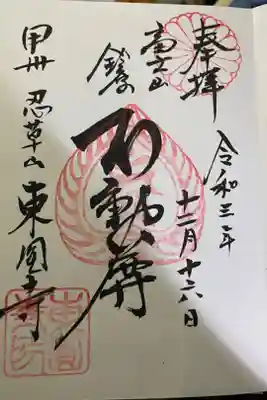 奉拝
令和三年
十二月十六日
富士山
鎧
不動尊
甲州 忍草山 東圓寺